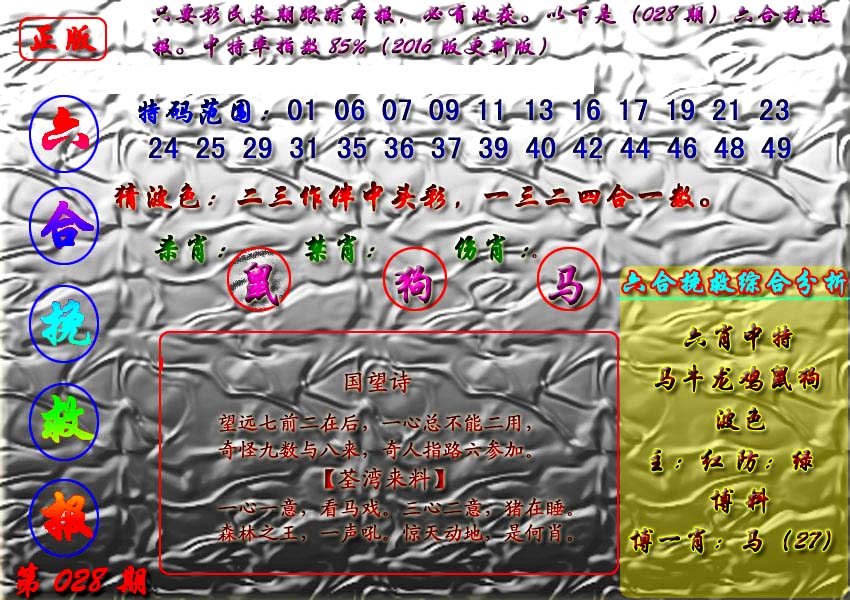 正版
只要彩民长期跟踪本报，必有收获。以下是（028期）六合挽救
报。中特率指数85%（2016版更新版）
六合挽救报
第028期
特码范围：01 06 07 09 11 13 16 17 19 21 23
24 25 29 31 35 36 37 39 40 42 44 46 48 49
猜波色：二三作伴中头彩，一三二四合一数。
杀肖：鼠 禁肖：狗 伤肖：马。
国望诗
望远七前二在后，一心总不能二用，
奇怪九数与八来，奇人指路六参加。
【荃湾来料】
一心一意，看马戏。三心二意，猪在睡。
森林之王，一声吼。惊天动地，是何肖。
六合挽救综合分析
六肖中特
马牛龙鸡鼠狗
波色
主：红防：绿
博料
博一肖：马（27）